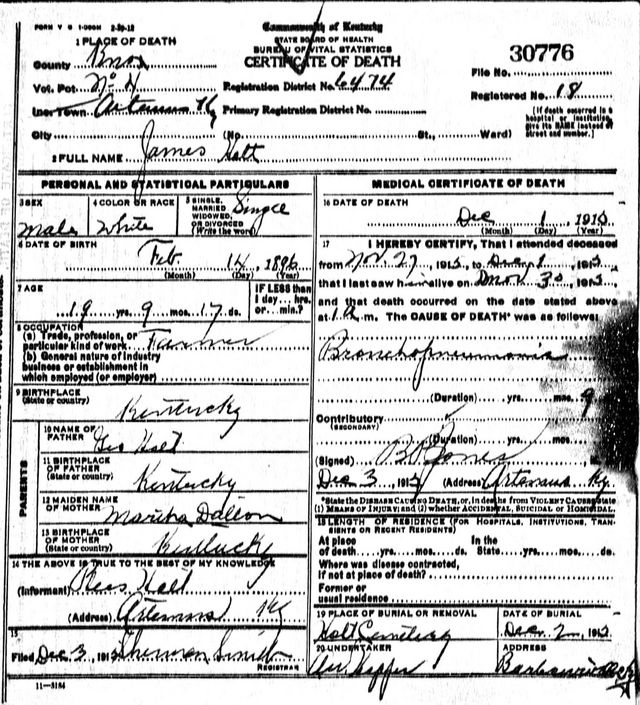 FORM V S 1-
Commonwealth of Kentucky
STATE BOARD OF HEALTH
BUREAU OF VITAL STATISTICS
CERTIFICATE OF DEATH
30776
1 PLACE OF DEATH
County Knox
Vot. Pct. No 4 Registration District No. 6474 File No.
Inc. Town Artemus Ky Primary Registration District No. Registered No. 18
City (No. St., Ward) [If death occurred in a hospital or institution, give its NAME instead of street and number.]
2 FULL NAME James Holt
PERSONAL AND STATISTICAL PARTICULARS
3 SEX Male
4 COLOR OR RACE White
5 SINGLE, MARRIED WIDOWED, OR DIVORCED (Write the word) Single
6 DATE OF BIRTH
Feb. 14, 1896
(Month) (Day) (Year)
7 AGE
19 yrs. 9 mos. 17 ds.
IF LESS than 1 day... hrs. or... min.?
8 OCCUPATION
(a) Trade, profession, or particular kind of work Farmer
(b) General nature of industry
business or establishment in
which employed (or employer)
9 BIRTHPLACE
(State or country) Kentucky
PARENTS
10 NAME OF FATHER Geo Holt
11 BIRTHPLACE OF FATHER (State or country) Kentucky
12 MAIDEN NAME OF MOTHER Martha
13 BIRTHPLACE OF MOTHER (State or country) Kentucky
14 THE ABOVE IS TRUE TO THE BEST OF MY KNOWLEDGE
(Informant) Holt
(Address) Artemus Ky
15
Filed Dec 3, 1915 Sherman Smith
REGISTRAR
11-3184
MEDICAL CERTIFICATE OF DEATH
16 DATE OF DEATH
Dec 1, 1915
(Month) (Day) (Year)
17 I HEREBY CERTIFY, That I attended deceased
from Nov. 27, 1915, to Dec 1, 1915
that I last saw him alive on Nov 30, 1915,
and that death occurred on the date stated above
at 1 a. m. The CAUSE OF DEATH* was as follows:
Bronchopneumonia
(Duration) yrs. mos. 9
Contributory
(SECONDARY)
(Duration) yrs. mos.
(Signed) Jones
Dec 3, 1915 (Address) Artemus Ky.
*State the DISEASE CAUSING DEATH, or, in deaths from VIOLENT CAUSES, state
(1) MEANS OF INJURY; and (2) whether ACCIDENTAL, SUICIDAL or HOMICIDAL.
18 LENGTH OF RESIDENCE (FOR HOSPITALS, INSTITUTIONS, TRANSIENTS OR RECENT RESIDENTS)
At place of death yrs. mos. ds. In the State yrs. mos. ds.
Where was disease contracted,
if not at place of death?
Former or
usual residence
19 PLACE OF BURIAL OR REMOVAL
Holt Cemetery
DATE OF BURIAL
Dec 2, 1915
20 UNDERTAKER
ADDRESS